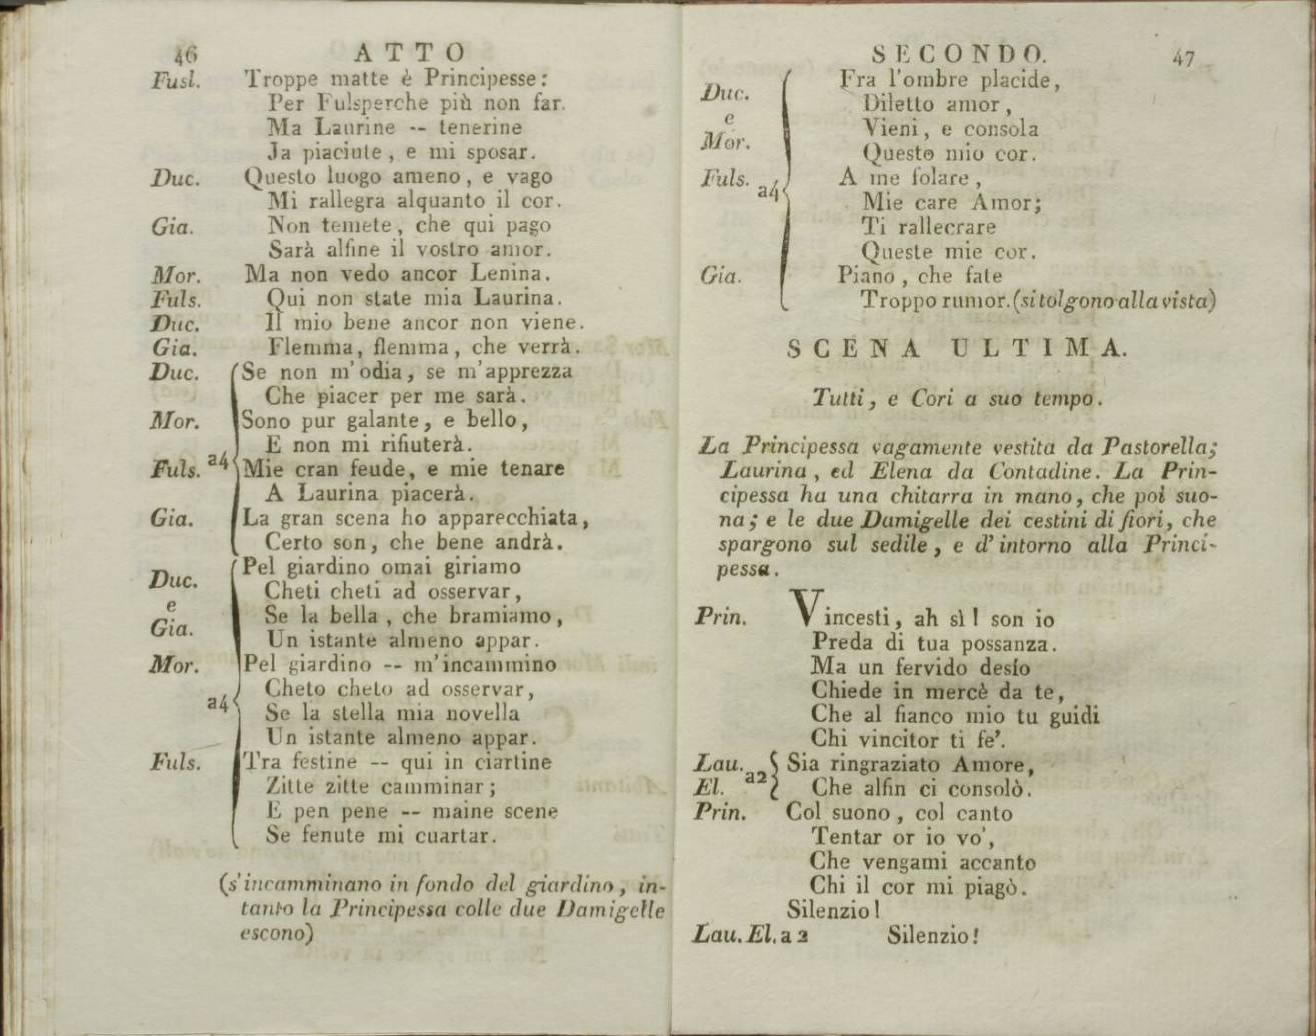 46 ATTO
Fusl. Troppe matte è Principesse:
Per Fulsperche più non far.
Ma Laurine -- tenerine
Ja piaciute, e mi sposar.
Duc. Questo luogo ameno, e vago
Mi rallegra alquanto il cor.
Gia. Non temete, che qui pago
Sarà alfine il vostro amor.
Mor. Ma non vedo ancor Lenina.
Fuls. Qui non state mia Laurina.
Duc. Il mio bene ancor non viene.
Gia. Flemma, flemma, che verrà.
Duc. Se non m'odia, se m'apprezza
Che piacer per me sarà.
Mor. Sono pur galante, e bello,
E non mi rifiuterà.
Fuls. a4 Mie cran feude, e mie tenare
A Laurina piacerà.
Gia. La gran scena ho apparecchiata,
Certo son, che bene andrà.
Duc. Pel giardino omai giriamo
Cheti cheti ad osservar,
e Se la bella, che bramiamo,
Gia. Un istante almeno appar.
Mor. Pel giardino -- m'incammino
Cheto cheto ad osservar,
a4 Se la stella mia novella
Un istante almeno appar.
Fuls. Tra festine -- qui in ciartine
Zitte zitte camminar;
E pen pene -- maine scene
Se fenute mi cuartar.
(s'incamminano in fondo del giardino, in-
tanto la Principessa colle due Damigelle
escono)
SECONDO. 47
Duc. Fra l'ombre placide,
Diletto amor,
e Vieni, e consola
Mor. Questo mio cor.
Fuls. a4 A me folare,
Mie care Amor;
Ti rallecrare
Queste mie cor.
Gia. Piano, che fate
Troppo rumor. (si tolgono alla vista)
SCENA ULTIMA.
Tutti, e Cori a suo tempo.
La Principessa vagamente vestita da Pastorella;
Laurina, ed Elena da Contadine. La Prin-
cipessa ha una chitarra in mano, che poi suo-
na; e le due Damigelle dei cestini di fiori, che
spargono sul sedile, e d'intorno alla Princi-
pessa.
Prin. Vincesti, ah sì! son io
Preda di tua possanza.
Ma un fervido desío
Chiede in mercè da te,
Che al fianco mio tu guidi
Chi vincitor ti fe'.
Lau. a2 Sia ringraziato Amore,
El. Che alfin ci consolò.
Prin. Col suono, col canto
Tentar or io vo',
Che vengami accanto
Chi il cor mi piagò.
Silenzio!
Lau. El. a 2 Silenzio!